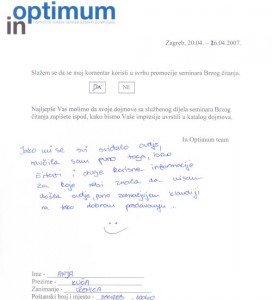 optimum
in
Zagreb, 20.04. - 26.04.2007.
Slažem se da se moj komentar koristi u svrhu promocije seminara Brzog čitanja.
DA NE
Najljepše Vas molimo da svoja dojmova sa službenog dijela seminara Brzog
čitanja zapišete ispod, kako bismo Vaše impresije uvrstili u katalog dojmova.
In Optimum team
Jako mi se svi svidalo ovdje,
naučila sam puno toga, brzo
čitati i dvije korisne informacije
za koje nebi znala da nisam
došla ovdje, puno zahvaljujem Klaudiji
na tako dobrom predavanju...
Ime - ANJA
Prezime -
Zanimanje - UČENICA
Poštanski broj i mjesto - ZAGREB,